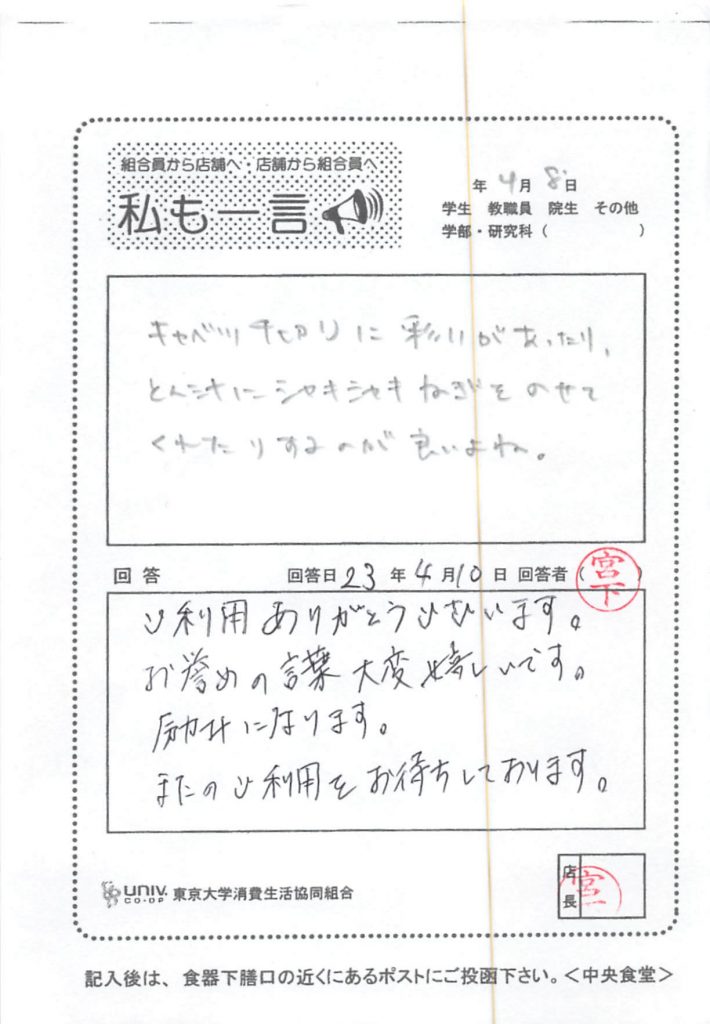 組合員から店舗へ・店舗から組合員へ
私も一言
年 4月 8日
学生 教職員 院生 その他
学部・研究科( )
キャベツ千切りに彩りがあったり、
とん汁にシャキシャキねぎをのせて
くれたりするのが良いよね。
回答 回答日 23年 4月10日 回答者(宮下)
ご利用ありがとうございます。
お誉めの言葉大変嬉しいです。
励みになります。
またのご利用をお待ちしております。
店長 宮
UNIV. CO-OP 東京大学消費生活協同組合
記入後は、食器下膳口の近くにあるポストにご投函下さい。<中央食堂>